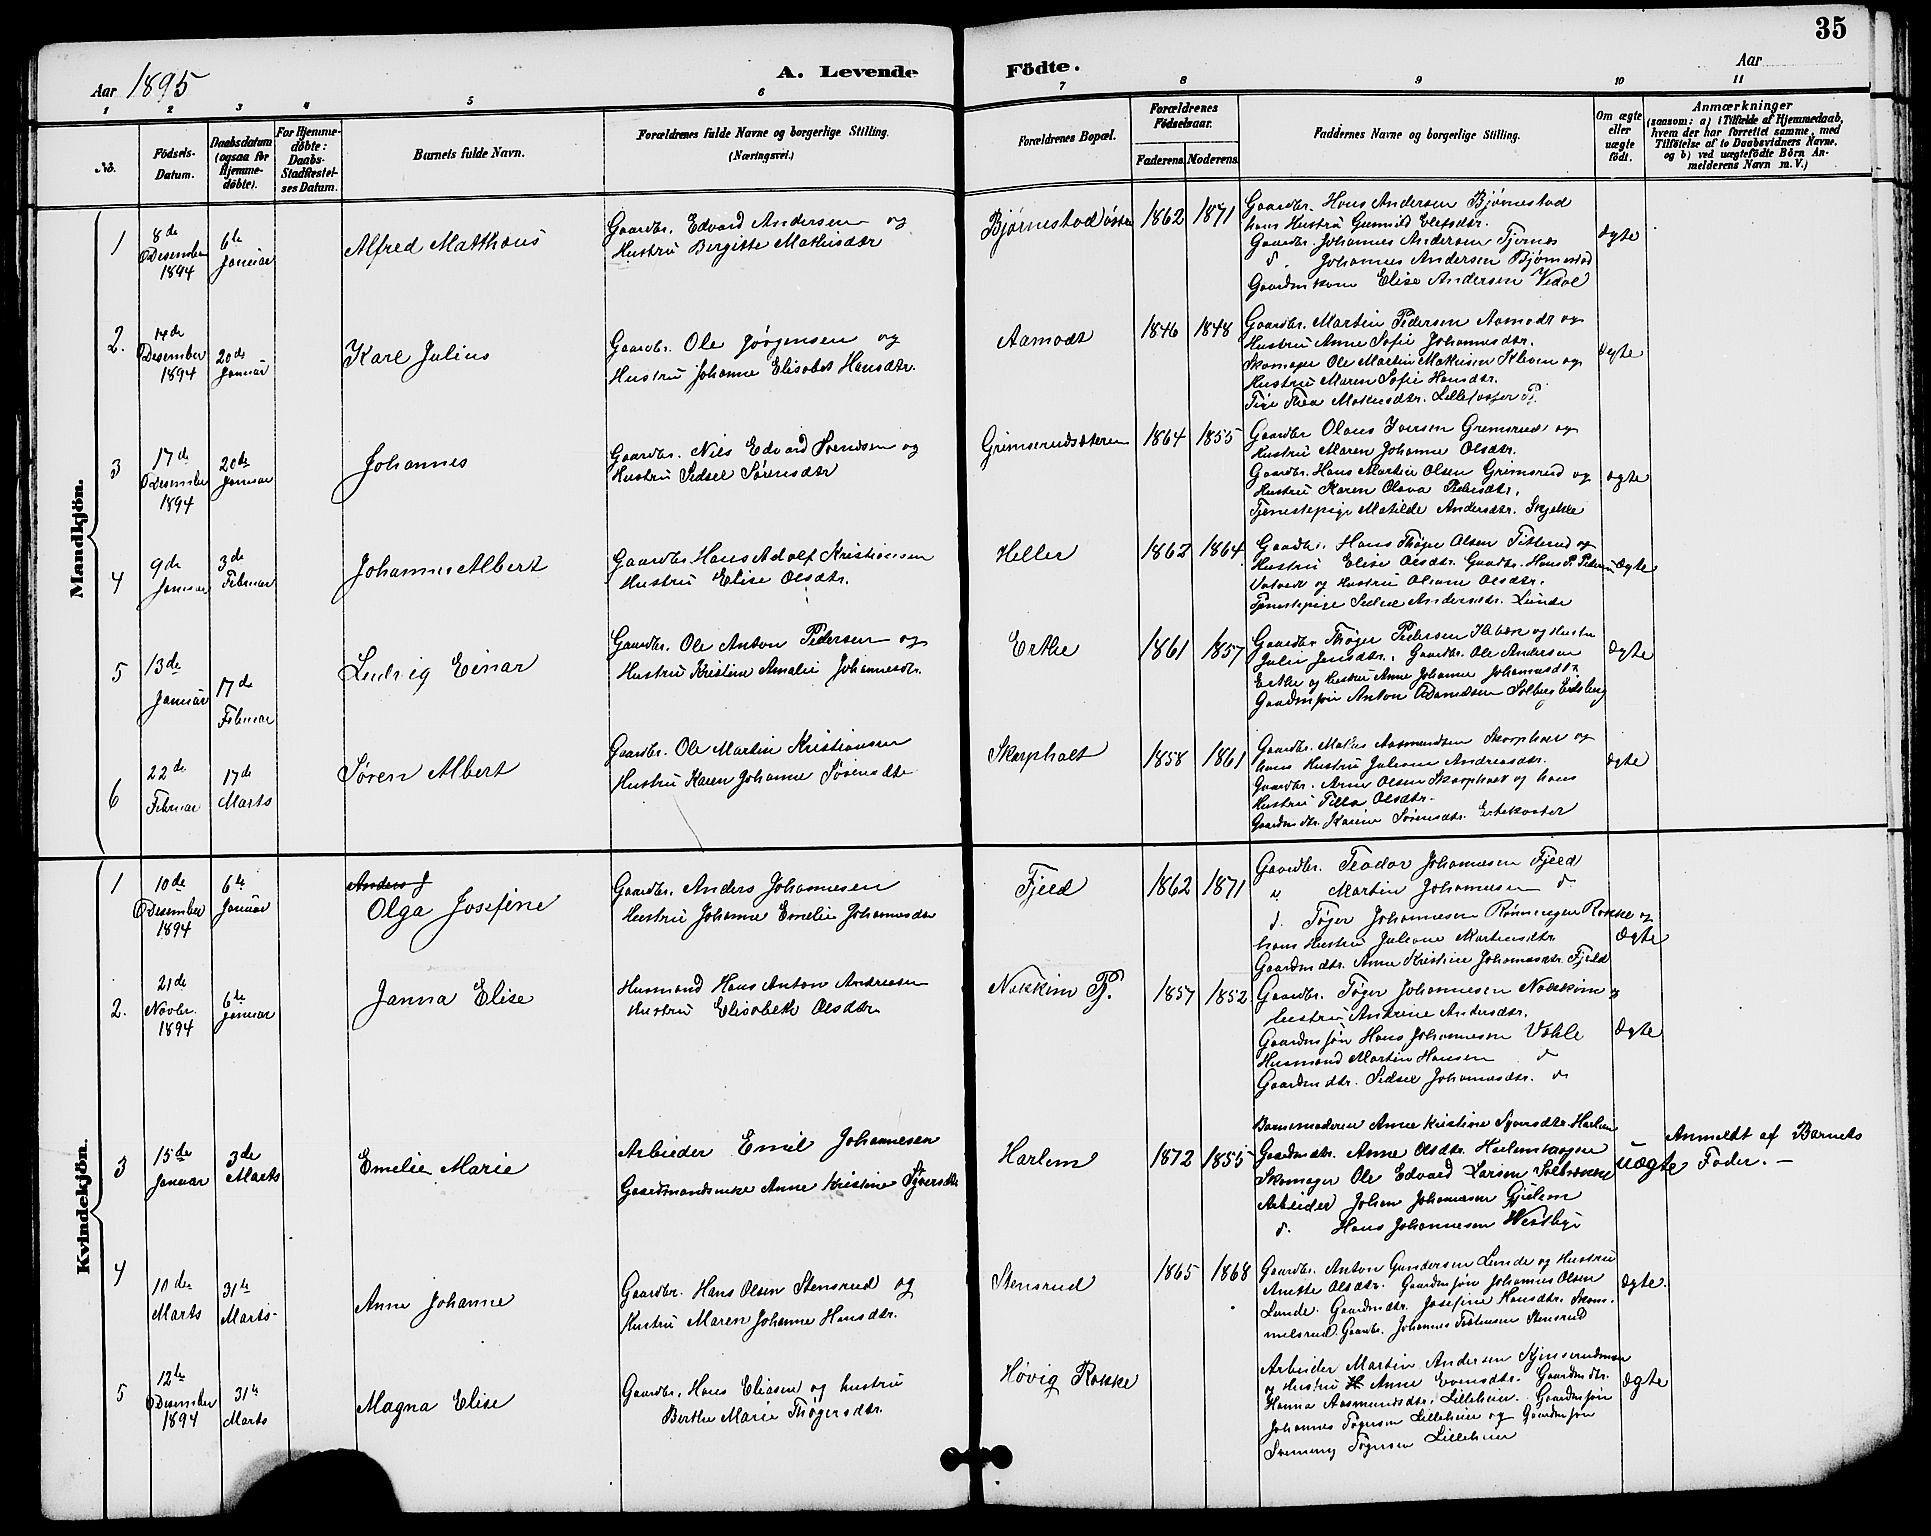 35
Aar 1895
A. Levende Födte.
Aar
1 2 3 4 5 6 7 8 9 10 11
No.
Födsels-Datum.
Daabsdatum (ogsaa for Hjemmedöbte).
For Hjemmedöbte: Daabs-Stadfæstelses Datum.
Barnets fulde Navn.
Forældrenes fulde Navne og borgerlige Stilling. (Næringsvei.)
Forældrenes Bopæl.
Forældrenes Födselsaar.
Faderens. Moderens.
Faddernes Navne og borgerlige Stilling.
Om ægte eller uægte födt.
Anmærkninger
(saasom: a) i Tilfælde af Hjemmedaab, hvem der har forrettet samme, med Tilföielse af to Daabsvidners Navne, og b) ved uægtefödte Börn Anmelderens Navn m. V.)
Mandkjön.
1
8de Desember 1894
6te Januar
Alfred Matthæus
Gaardbr. Edvard Andersen og
Hustru Bergitte Mathisdtr
Bjørnestad østre
1862 1871
Gaardbr. Hans Andersen Bjørnestad
hans Hustru Gunnild Elefsdtr.
Gaardbr. Johannes Andersen Tjernes
d. Johannes Andersen Bjørnestad
Gaardmkone Elise Andersen Vedal
ægte
2.
14de Desember 1894
20de Januar
Karl Julius
Gaardbr. Ole Jørgensen og
Hustru Johanne Elisabet Hansdtr.
Aamodt
1846 1848
Gaardbr. Martin Pedersen Aamodt og
Hustru Anne Sofie Johannesdtr.
Skomager Ole Martin Mathisen Skleven og
Hustru Maren Sofie Hansdtr.
Pige Thea Mathisdtr.
ægte
3
17de Desember 1894
20de Januar
Johannes
Gaardbr. Nils Edvard Svendsen og
Hustru Sidsel Sørensdtr
Grimsrudsæteren
1864 1855
Gaardbr Olaus Iversen Gremsrud og
Hustru Maren Johanne Olsdtr.
Gaardbr. Hans Martin Olsen Grimsrud og
Hustru Karen Olava Pedersdtr.
Tjenestepige Matilde Andersdtr. Skjekle
ægte
4
9de Januar
3de Februar
Johannes Albert
Gaardbr. Hans Adolf Kristiansen
Hustru Elise Olsdtr.
Heller
1862 1864
Gaardbr. Hans Thøger Olsen Titterud og
Hustru Elise Olsdtr. Gaardbr. Hans P. Pedersen
og Hustru Oliane Olsdtr.
Tjenestepige Sidsel Andersdtr. Lunde
ægte
5
13de Januar
17de Februar
Ludvig Einar
Gaardbr. Ole Anton Pedersen og
Hustru Kristine Amalie Johannesdtr.
Erthe
1861 1857
Gaardbr Thøger Pedersen og Hustru
Julie Jensdtr. Gaardbr. Ole Andersen
Erthe og Hustru Anne Johanne Johannesdtr
Gaardmsøn Anton Solberg Eidsberg
ægte
6
22de Februar
17de Marts
Søren Albert
Gaardbr. Ole Martin Kristiansen
Hustru Karen Johanne Sørensdtr
Skarpholt
1858 1861
Gaardbr. Aasmundsen Skarpholt og
hans Hustru Juliane Andreasdtr.
Gaardbr. Arne Olsen Skarpholt og hans
Hustru Tilla Olsdtr.
Gaardmdtr. Karine Sørensdtr. Ertekasten
ægte
Kvindekjön.
1
10de Desember 1894
6te Januar
Anders J
Olga Josefine
Gaardbr. Anders Johannesen
Hustru Johanne Emelie Johannesdtr
Fjeld
1862 1871
Gaardbr. Teodor Johannesen Fjeld
" Martin Johannesen d.
d. Tøger Johannesen Rønningen Rokke og
hans Hustru Juliane Martinsdtr.
Gaardmdtr. Anne Kristine Johannesdtr. Fjeld
ægte
2.
21de Novbr. 1894
6te Januar
Janna Elise
Husmand Hans Anton Andreasen
Hustru Elisabeth Olsdtr.
Nokkim Pj.
1857 1852
Gaardbr. Tøger Johannesen Nokkim og
Hustru Andrine Andersdtr.
Gaardmsøn Hans Johannesen Vahle
Husmand Martin Hansen d
Gaardmdtr. Sidsel Johannesdtr. d
ægte
3
15de Januar
3de Marts
Emelie Marie
Arbieder Emil Johannesen
Gaardmandsenke Anne Kristine Syversdtr
Harlem
1872 1855
Barnemoderen Anne Kristine Syversdtr. Harlem
Gaardmdtr. Anne Olsdtr. Harlemhaugen
Skomager Ole Edvard Larsen Solbrekke
Arbeider Johan Johannesen Gjelem
d. Hans Johannesen Westbye
uægte
Anmeldt af Barnets
Fader. —
4
10de Marts
31te Marts
Anne Johanne
Gaardbr. Hans Olsen Stensrud og
Hustru Maren Johanne Hansdtr.
Stensrud
1865 1868
Gaardbr. Anton Gundersen Lunde og Hustru
Anette Olsdtr. Gaardmsøn Johannes Olsen
Lunde. Gaardmdtr. Josefine Hansdtr. Skammelsrud
Gaardbr. Johannes Stensrud
ægte.
5
12te Desember 1894
31te Marts
Magna Elise
Gaardbr. Hans Eliasen og hustru
Berthe Marie Thøgersdtr.
Høvig Rokke
Arbeider Martin Andersen
og Hustru Anne Evensdtr. Gaardmdtr.
Hanna Aasmundsdtr. Lilleheier. Gaardmsøn
Johannes Tøgersen Lilleheier og Gaardmsøn
Svenning Tøgersen Lilleheier
ægte